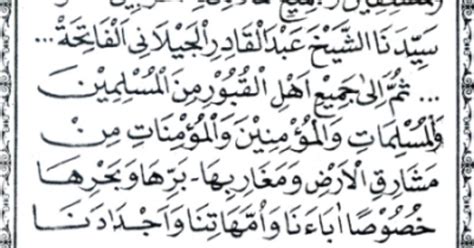 سَيِّدِنَا الشَّيْخِ عَبْدِ الْقَادِرِ الْجَيْلَانِى الْفَاتِحَةْ ...
... ثُمَّ اِلىٰ جَمِيْعِ اَهْلِ الْقُبُوْرِ مِنَ الْمُسْلِمِيْنَ
وَالْمُسْلِمَاتِ وَالْمُؤْمِنِيْنَ وَالْمُؤْمِنَاتِ مِنْ
مَشَارِقِ الْاَرْضِ وَمَغَارِبِهَا - بَرِّهَا وَبَحْرِهَا
خُصُوْصًا اٰبَاءَنَا وَاُمَّهَاتِنَا وَاَجْدَادَنَا